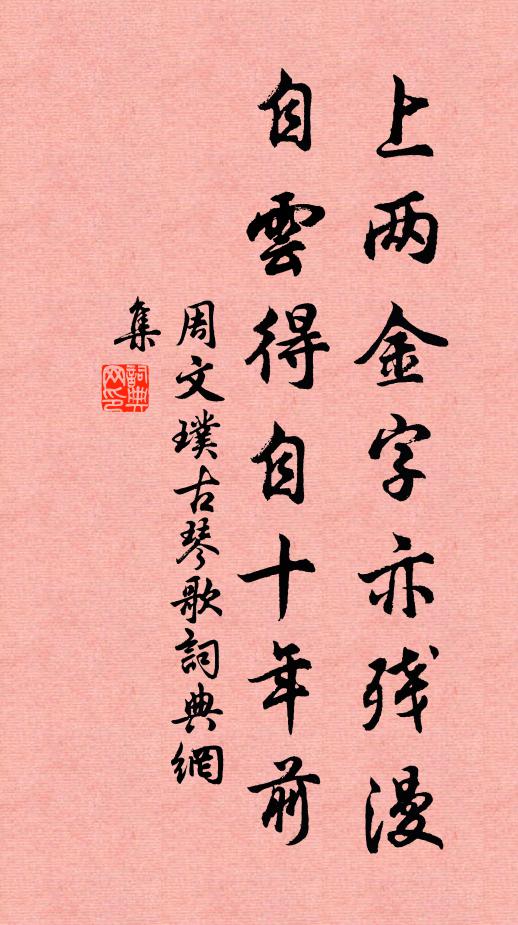 上两金字亦残漫
自雲得自十年前
周文璞古琴歌詞典網
集
詞典网印